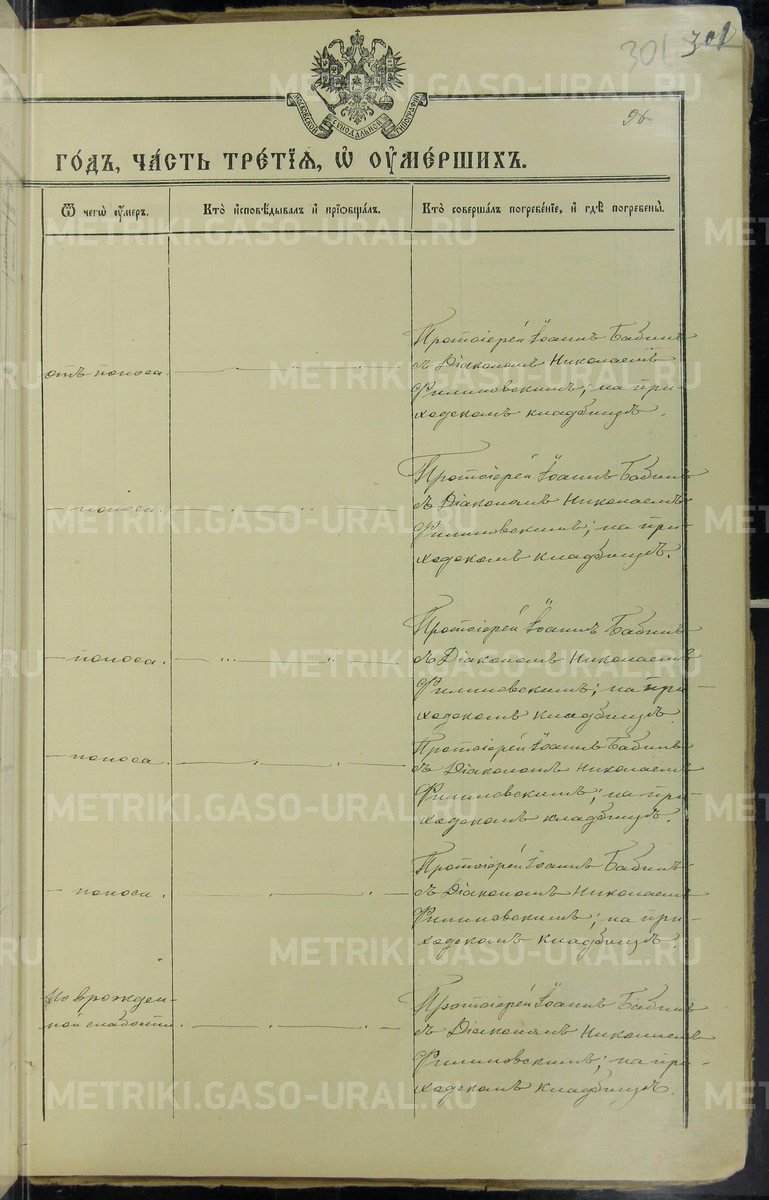 301 301
96
МОСКОВСКОЙ СѴНОДАЛЬНОЙ ТИПОГРАФІИ
ГО́ДЪ, ЧА́СТЬ ТРЕ́ТЇѦ, Ѡ҆ ОУ҆МЕ́РШИХЪ.
Ѿ чегѡ̀ оу҆́меръ. Кто̀ и҆сповѣ́дывалъ и҆ прїѡбща́лъ. Кто̀ соверша́лъ погребе́нїе, и҆ гдѣ̀ погребены̀.
отъ поноса.
Протоіерей Іоаннъ Бабинъ
съ Діакономъ Николаемъ
Филиповскимъ; на при-
ходскомъ кладбищѣ.
— поноса.
Протоіерей Іоаннъ Бабинъ
съ Діакономъ Николаемъ
Филиповскимъ; на при-
ходскомъ кладбищѣ.
— поноса.
Протоіерей Іоаннъ Бабинъ
съ Діакономъ Николаемъ
Филиповскимъ; на при-
ходскомъ кладбищѣ.
— поноса.
Протоіерей Іоаннъ Бабинъ
съ Діакономъ Николаемъ
Филиповскимъ; на при-
ходскомъ кладбищѣ.
— поноса.
Протоіерей Іоаннъ Бабинъ
съ Діакономъ Николаемъ
Филиповскимъ; на при-
ходскомъ кладбищѣ.
По врожден-
ной слабости.
Протоіерей Іоаннъ Бабинъ
съ Діакономъ Николаемъ
Филиповскимъ; на при-
ходскомъ кладбищѣ.
METRIKI.GASO-URAL.RU